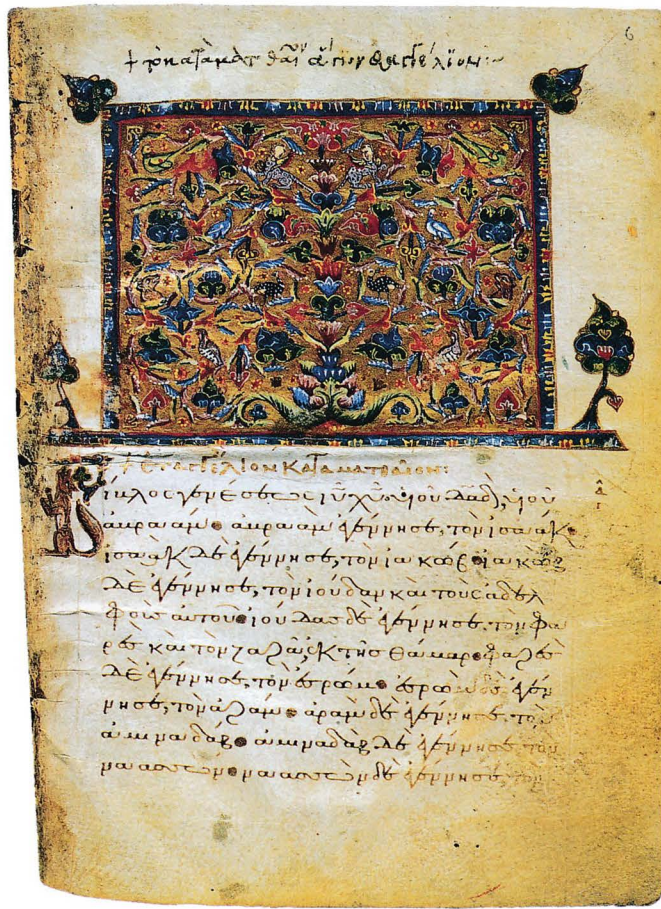 6
+ τὸ κατὰ ματθαῖ ἅγιον εὐαγγέλιον:~
+ ΕΥΑΓΓΕΛΙΟΝ ΚΑΤΑ ΜΑΤΘΑΙΟΝ:
Βίβλος γενέσεως ιῡ χῡ υἱοῦ δᾱδ, υἱοῦ
ἀβραάμ. ἀβραὰμ ἐγέννησε, τὸν ἰσαάκ.
ἰσαὰκ δὲ ἐγέννησε, τὸν ἰακώβ. ἰακὼβ
δὲ ἐγέννησε, τὸν ἰούδαν καὶ τοὺς ἀδελ
φοὺς αὐτοῦ. ἰούδας δὲ ἐγέννησε, τὸν φα
ρὲς καὶ τὸν ζαρὰ, ἐκ τῆς θάμαρ. φαρὲς
δὲ ἐγέννησε, τὸν ἐσρώμ. ἐσρὼμ δὲ ἐγέν
νησε, τὸν ἀράμ. ἀρὰμ δὲ ἐγέννησε, τὸν
ἀμιναδάβ. ἀμιναδὰβ δὲ ἐγέννησε, τὸν
ναασσών. ναασσὼν δὲ ἐγέννησε, τὸν